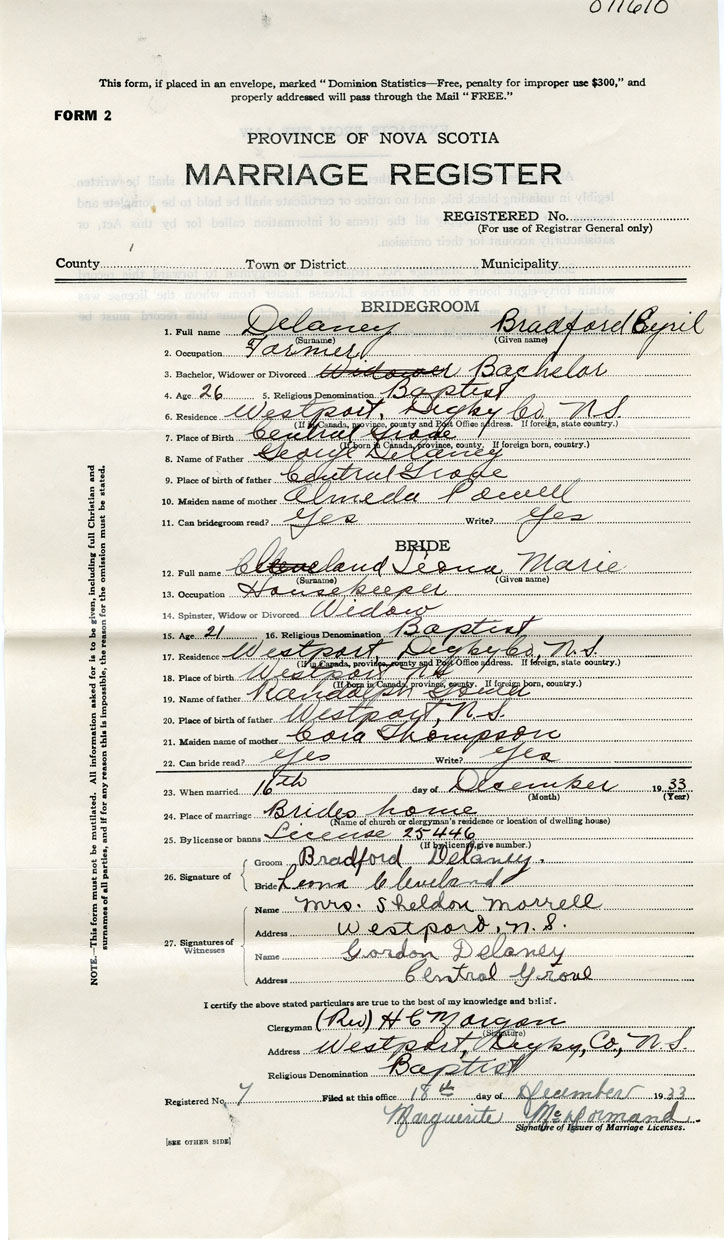 011610
This form, if placed in an envelope, marked "Dominion Statistics—Free, penalty for improper use $300," and
properly addressed will pass through the Mail "FREE."
FORM 2
PROVINCE OF NOVA SCOTIA
MARRIAGE REGISTER
REGISTERED No.
(For use of Registrar General only)
County Town or District Municipality
BRIDEGROOM
1. Full name Delaney Bradford Cyril
(Surname) (Given name)
2. Occupation Farmer
3. Bachelor, Widower or Divorced Widower Bachelor
4. Age 26 5. Religious Denomination Baptist
6. Residence Westport, Digby Co, N.S.
(If in Canada, province, county and Post Office address. If foreign, state country.)
7. Place of Birth Central Grove
(If born in Canada, province, county. If foreign born, country.)
8. Name of Father George Delaney
9. Place of birth of father Central Grove
10. Maiden name of mother Almeda Powell
11. Can bridegroom read? Yes Write? Yes
BRIDE
12. Full name Cleveland Leona Marie
(Surname) (Given name)
13. Occupation Housekeeper
14. Spinster, Widow or Divorced Widow
15. Age 21 16. Religious Denomination Baptist
17. Residence Westport, Digby Co, N.S.
(If in Canada, province, county and Post Office address. If foreign, state country.)
18. Place of birth Westport N.S.
(If born in Canada, province, county. If foreign born, country.)
19. Name of father Randolph Gower
20. Place of birth of father Westport, N.S.
21. Maiden name of mother Cora Thompson
22. Can bride read? Yes Write? Yes
23. When married 16th day of December 1933
(Month) (Year)
24. Place of marriage Brides home
(Name of church or clergyman's residence or location of dwelling house)
25. By license or banns License 25446
(If by license, give number.)
26. Signature of Groom Bradford Delaney.
Bride Leona Cleveland
27. Signatures of Witnesses Name Mrs. Sheldon Morrell
Address Westport, N.S.
Name Gordon Delaney
Address Central Grove
I certify the above stated particulars are true to the best of my knowledge and belief.
Clergyman (Rev) H C Morgan
(Signature)
Address Westport, Digby, Co., N.S.
Religious Denomination Baptist
Registered No. 7 Filed at this office 18th day of December 1933
Marguerite McDormand
Signature of Issuer of Marriage Licenses.
[SEE OTHER SIDE]
NOTE.—This form must not be mutilated. All information asked for is to be given, including full Christian and
surnames of all parties, and if for any reason this is impossible, the reason for the omission must be stated.